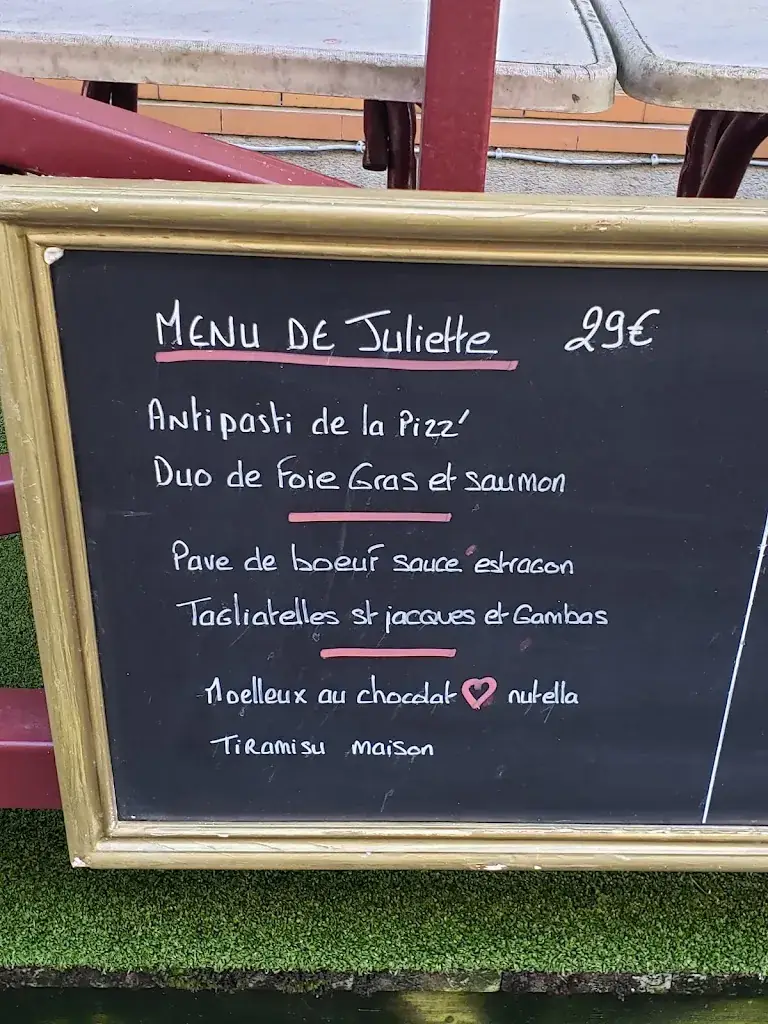 MENU DE Juliette 29€
Antipasti de la Pizz'
Duo de Foie Gras et saumon
Pave de boeuf sauce estragon
Tagliatelles st jacques et Gambas
Moelleux au chocolat ♥ nutella
Tiramisu maison